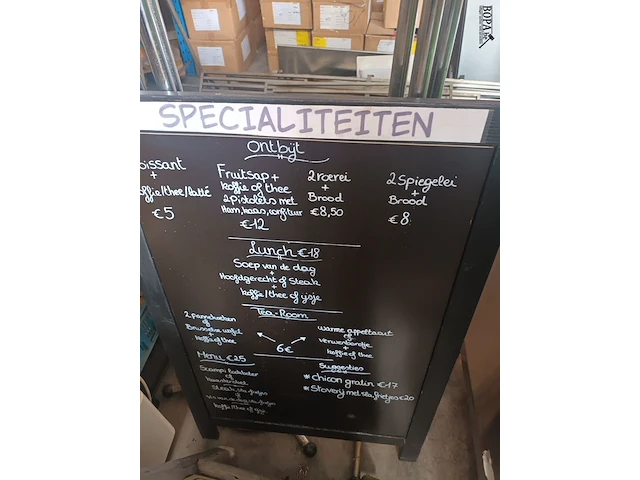 BOPA
SPECIALITEITEN
Ontbijt
oissant
+
offie/thee/latté
€5
Fruitsap +
koffie of thee
2 pistolets met
Ham, kaas, confituur
€12
2 roerei
+
Brood
€8,50
2 Spiegelei
+
Brood
€8
Lunch €18
Soep van de dag
+
Hoofdgerecht of Steak
+
koffie/thee of ijsje
Tea-Room
2 pannekoeken
of
Brusselse wafel
+
koffie of thee
6€
Warme appeltaart
of
verwenbordje
+
koffie of thee
Menu €25
Scampi
of
kaaskroket
+
Steak, sla, frietjes
of
Vis van de dag, sla, frietjes
+
koffie/thee of ijsje
Suggesties
* chicon gratin €17
* Stoverij met sla, frietjes €20